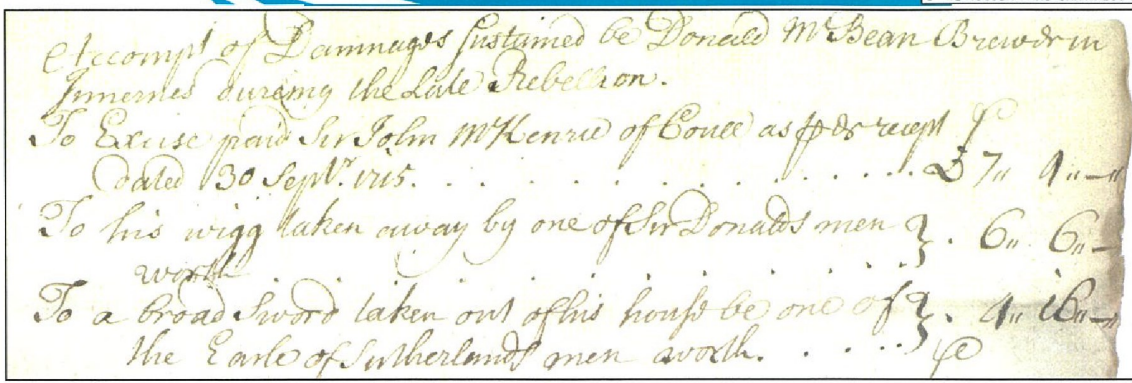 Accompt of Damnages sustained be Donald McBean Brewer in
Innerness dureing the Late Rebellion.
To Excise paid Sir John McKenzie of Coull as per recept
dated 30 Septr. 1715. . . . . . . . . . . . . . . £ 7 „ 4 „ — „
To his wigg taken away by one of Sir Donalds men } . 6 „ 6 „ —
worth
To a broad Sword taken out of his house be one of } . 4 „ 16 „ —
the Earle of Sutherlands men worth. . . . .